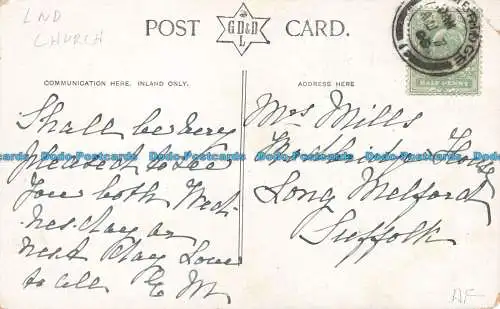 LND
CHURCH
POST CARD.
G.D.&D
L
COMMUNICATION HERE, INLAND ONLY.
Shall be very
pleased to see
you both Wed-
nesday or
next day Love
to all E M
ADDRESS HERE
Mrs Mills
House
Long Melford
Suffolk
HALF PENNY
AF
Dodo Postcards Dodo Postcards Dodo Postcards Dodo Postcards Dodo Postcards Dodo Postcards